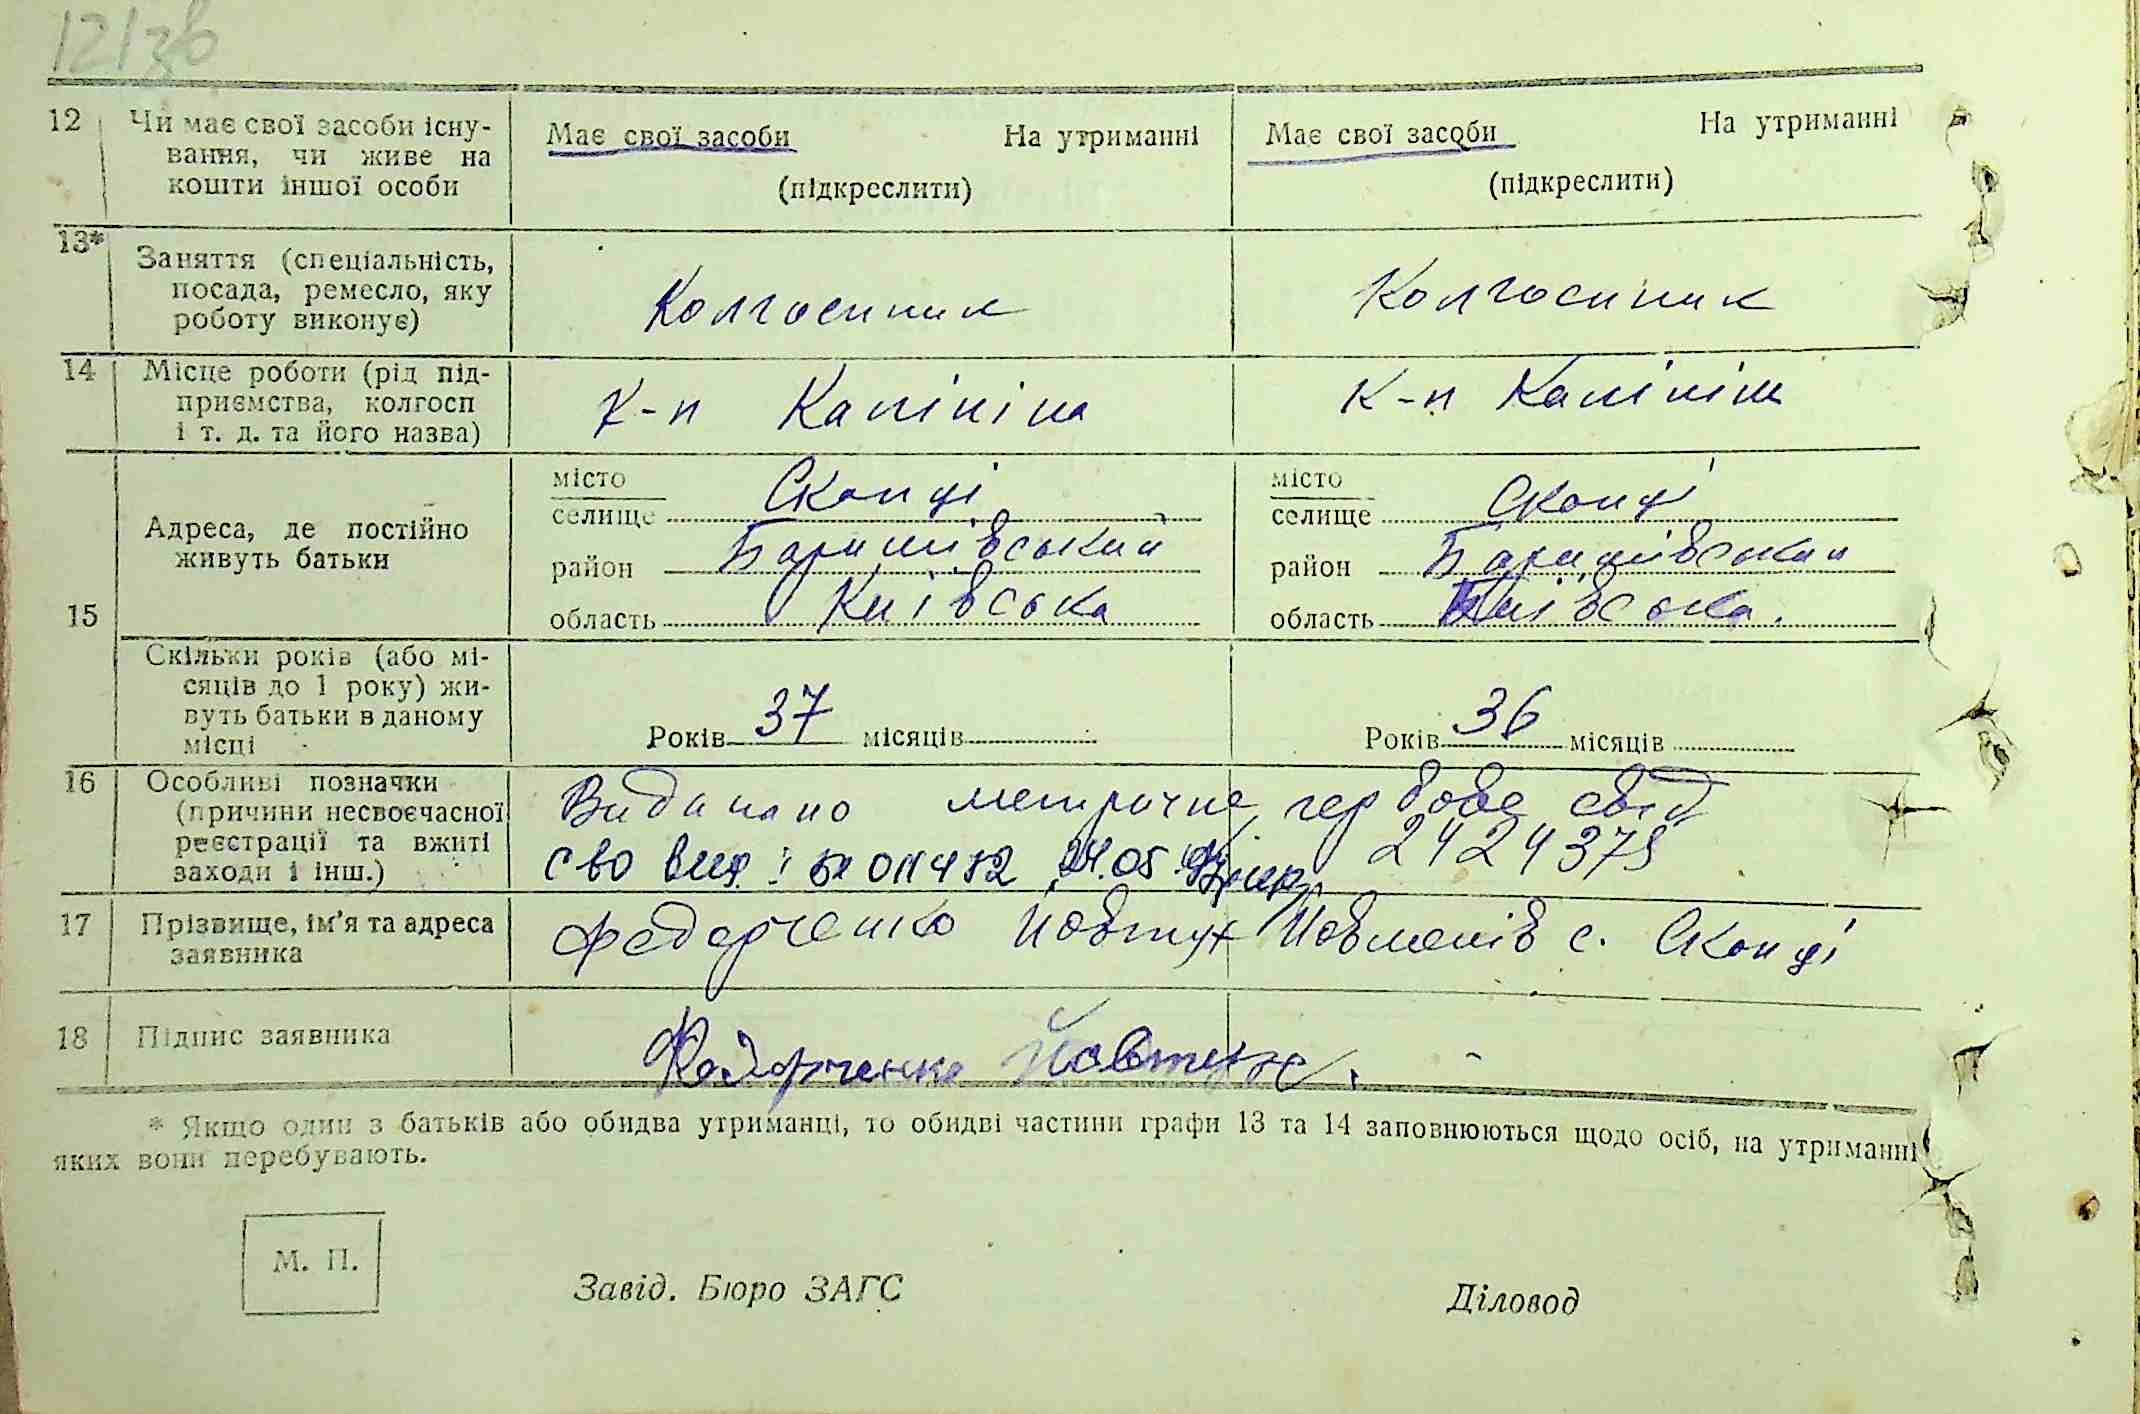 12 Чи має свої засоби існу-
вання, чи живе на
кошти іншої особи
Має свої засоби На утриманні
(підкреслити)
Має свої засоби На утриманні
(підкреслити)
13* Заняття (спеціальність,
посада, ремесло, яку
роботу виконує)
Колгоспник
Колгоспник
14 Місце роботи (рід під-
приємства, колгосп
і т. д. та його назва)
К-п Калініна
К-п Калініна
15
Адреса, де постійно
живуть батьки
місто
селище Скопці
район Баришівський
область Київська
місто
селище Скопці
район Баришівський
область Київська.
Скільки років (або мі-
сяців до 1 року) жи-
вуть батьки в даному
місці
Років 37 місяців
Років 36 місяців
16 Особливі позначки
(причини несвоєчасної
реєстрації та вжиті
заходи і інш.)
Видано метричне гербове свід
2424375
сво 011482 24.05
17 Прізвище, ім'я та адреса
заявника
Федорченко Йовтух с. Скопці
18 Підпис заявника
Федорченко Йовтух.
* Якщо один з батьків або обидва утриманці, то обидві частини графи 13 та 14 заповнюються щодо осіб, на утриманні
яких вони перебувають.
М. П.
Завід. Бюро ЗАГС
Діловод